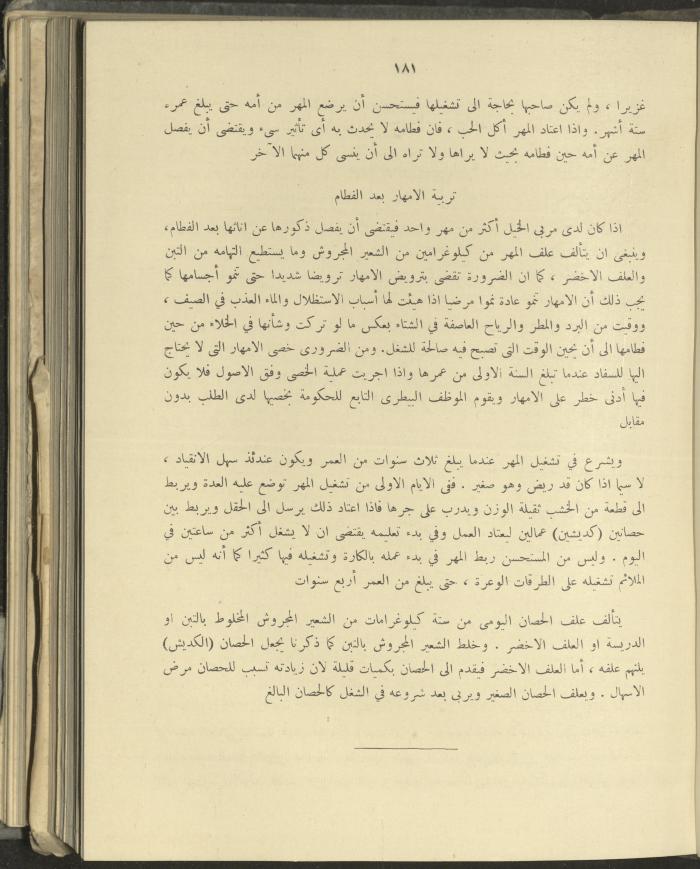 ١٨١
غزيرا ، ولم يكن صاحبها بحاجة الى تشغيلها فيستحسن أن يرضع المهر من أمه حتى يبلغ عمره
ستة أشهر. واذا اعتاد المهر أكل الحب ، فان فطامه لا يحدث به أى تأثير سىء ويقتضى أن يفصل
المهر عن أمه حين فطامه بحيث لا يراها ولا تراه الى أن ينسى كل منهما الآخر
تربية الامهار بعد الفطام
اذا كان لدى مربى الخيل أكثر من مهر واحد فيقتضى أن يفصل ذكورها عن اناثها بعد الفطام،
وينبغى ان يتألف علف المهر من كيلوغرامين من الشعير المجروش وما يستطيع التهامه من التبن
والعلف الاخضر ، كما ان الضرورة تقضى بترويض الامهار ترويضا شديدا حتى تنمو أجسامها كما
يجب ذلك أن الامهار تنمو عادة نموا مرضيا اذا هيئت لها أسباب الاستظلال والماء العذب في الصيف ،
ووقيت من البرد والمطر والرياح العاصفة في الشتاء بعكس ما لو تركت وشأنها في الخلاء من حين
فطامها الى أن يحين الوقت التى تصبح فيه صالحة للشغل. ومن الضرورى خصى الامهار التى لا يحتاج
اليها للسفاد عندما تبلغ السنة الاولى من عمرها واذا اجريت عملية الخصى وفق الاصول فلا يكون
فيها أدنى خطر على الامهار ويقوم الموظف البيطرى التابع للحكومة بخصيها لدى الطلب بدون
مقابل
ويشرع في تشغيل المهر عندما يبلغ ثلاث سنوات من العمر ويكون عندئذ سهل الانقياد ،
لا سيما اذا كان قد ريض وهو صغير . ففى الايام الاولى من تشغيل المهر توضع عليه العدة ويربط
الى قطعة من الخشب ثقيلة الوزن ويدرب على جرها فاذا اعتاد ذلك يرسل الى الحقل ويربط بين
حصانين (كديشين) عمالين ليعتاد العمل وفي بدء تعليمه يقتضى ان لا يشغل أكثر من ساعتين في
اليوم . وليس من المستحسن ربط المهر في بدء عمله بالكارة وتشغيله فيها كثيرا كما أنه ليس من
الملائم تشغيله على الطرقات الوعرة ، حتى يبلغ من العمر أربع سنوات
يتألف علف الحصان اليومى من ستة كيلوغرامات من الشعير المجروش المخلوط بالتبن او
الدريسة او العلف الاخضر . وخلط الشعير المجروش بالتبن كما ذكرنا يجعل الحصان (الكديش)
يلتهم علفه ، أما العلف الاخضر فيقدم الى الحصان بكميات قليلة لان زيادته تسبب للحصان مرض
الاسهال . ويعلف الحصان الصغير ويربى بعد شروعه في الشغل كالحصان البالغ